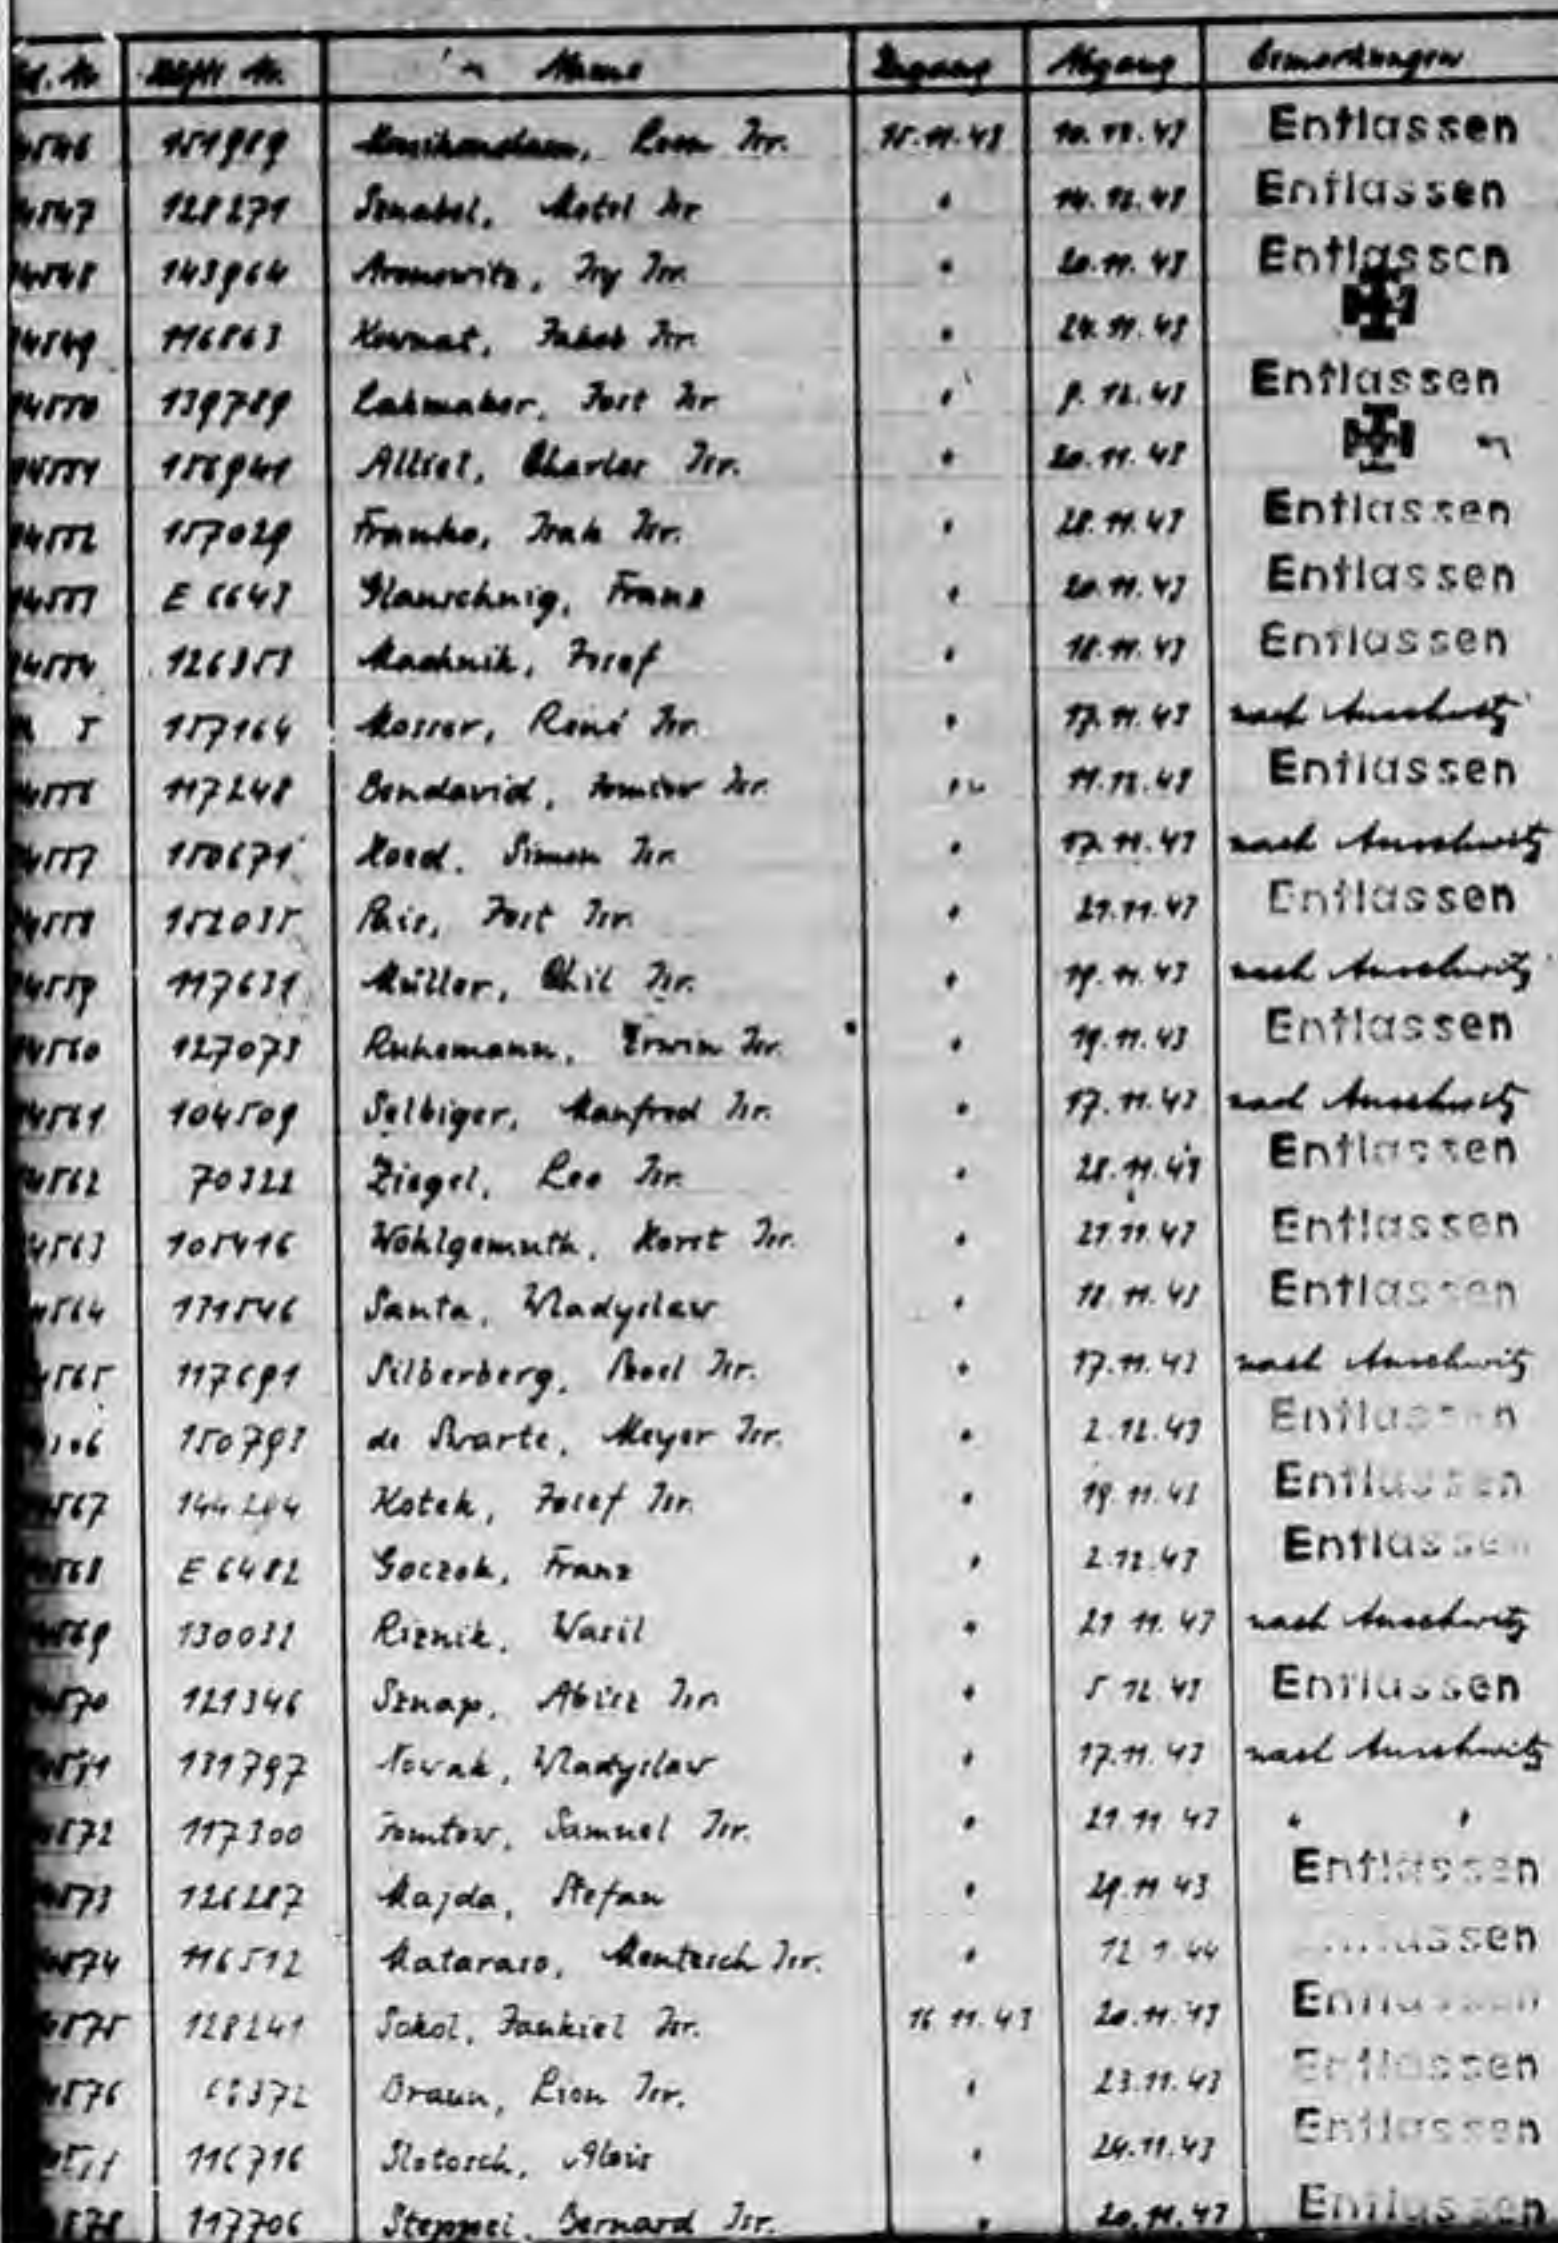 Name Zugang Abgang Bemerkungen
151989 Leon Isr. 15.11.43 10.12.43 Entlassen
14547 128271 Sznabel, Motel Isr. " 14.12.43 Entlassen
14548 143964 Aronowitz, Isy Isr. " 20.11.43 Entlassen
14549 116863 Kownat, Jakob Isr. " 24.11.43
14550 139789 Lakmaker, Jost Isr. " 9.12.43 Entlassen
14551 156941 Alltel, Charles Isr. " 20.11.43
14552 157029 Franko, Isak Isr. " 28.11.43 Entlassen
14553 E 6643 Glauschnig, Franz " 20.11.43 Entlassen
14554 126353 Machnik, Josef " 18.11.43 Entlassen
5 157164 Mosser, René Isr. " 17.11.43 nach Auschwitz
14556 117248 Bendavid, Jomtow Isr. " 11.12.43 Entlassen
14557 150671 Koed, Simon Isr. " 17.11.43 nach Auschwitz
14558 152035 Pais, Jost Isr. " 21.11.43 Entlassen
14559 117631 Müller, Chil Isr. " 19.11.43 nach Auschwitz
14560 127073 Ruhemann, Erwin Isr. " 19.11.43 Entlassen
14561 104509 Selbiger, Manfred Isr. " 17.11.43 nach Auschwitz
4562 70322 Ziegel, Leo Isr. " 28.11.43 Entlassen
4563 105416 Wohlgemuth, Horst Isr. " 21.11.43 Entlassen
4564 131546 Santa, Wladyslaw " 18.11.43 Entlassen
4565 117691 Silberberg, Isr. " 17.11.43 nach Auschwitz
150793 de Swarte, Meyer Isr. " 2.12.43 Entlassen
4567 144294 Kotek, Josef Isr. " 19.11.43 Entlassen
4568 E 6482 Goczok, Franz " 2.12.43 Entlassen
4569 130032 Riznik, Wasil " 21.11.43 nach Auschwitz
4570 121346 Sznap, Abisz Isr. " 5.12.43 Entlassen
4571 131797 Nowak, Wladyslaw " 17.11.43 nach Auschwitz
4572 117300 Jomtow, Samuel Isr. " 21.11.43 " "
4573 126287 Majda, Stefan " 29.11.43 Entlassen
4574 116512 Mataraso, Mentesch Isr. " 12.1.44 Entlassen
4575 128241 Sokol, Jankiel Isr. 16.11.43 20.11.43 Entlassen
4576 68372 Braun, Lion Isr. " 23.11.43 Entlassen
116716 Slotosch, Alois " 24.11.43 Entlassen
4578 117706 Steppel, Bernard Isr. " 20.11.43 Entlassen